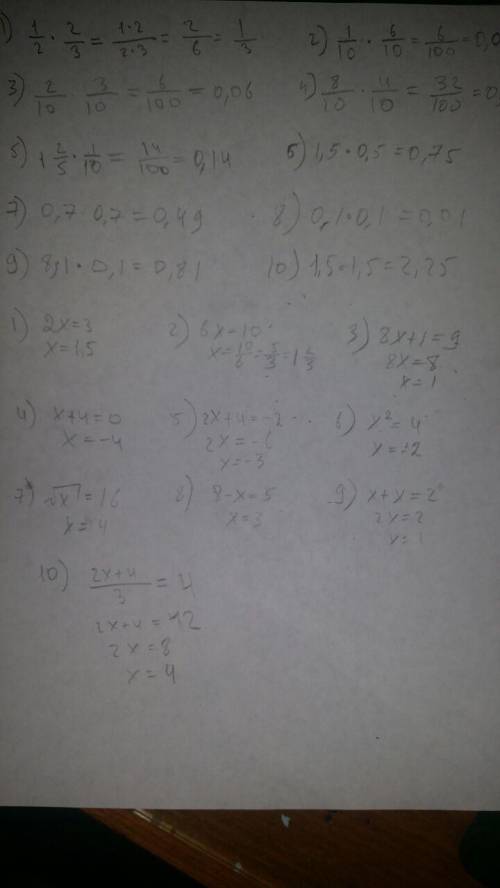 1) 1/2 · 2/3 = 1·2/2·3 = 2/6 = 1/3 2) 1/10 · 6/10 = 6/100 = 0,0
3) 2/10 · 3/10 = 6/100 = 0,06 4) 8/10 · 4/10 = 32/100 = 0,
5) 1 2/5 · 1/10 = 14/100 = 0,14 6) 1,5 · 0,5 = 0,75
7) 0,7 · 0,7 = 0,49 8) 0,1 · 0,1 = 0,01
9) 8,1 · 0,1 = 0,81 10) 1,5 · 1,5 = 2,25
1) 2x = 3 2) 6x = 10 3) 8x + 1 = 9
x = 1,5 x = 10/6 = 5/3 = 1 2/3 8x = 8
x = 1
4) x + 4 = 0 5) 2x + 4 = -2 6) x² = 4
x = -4 2x = -6 x = ±2
x = -3
7) √x = 16 8) 8 - x = 5 9) x + x = 2
x = 4 x = 3 2x = 2
x = 1
10) 2x+4/3 = 4
2x + 4 = 12
2x = 8
x = 4